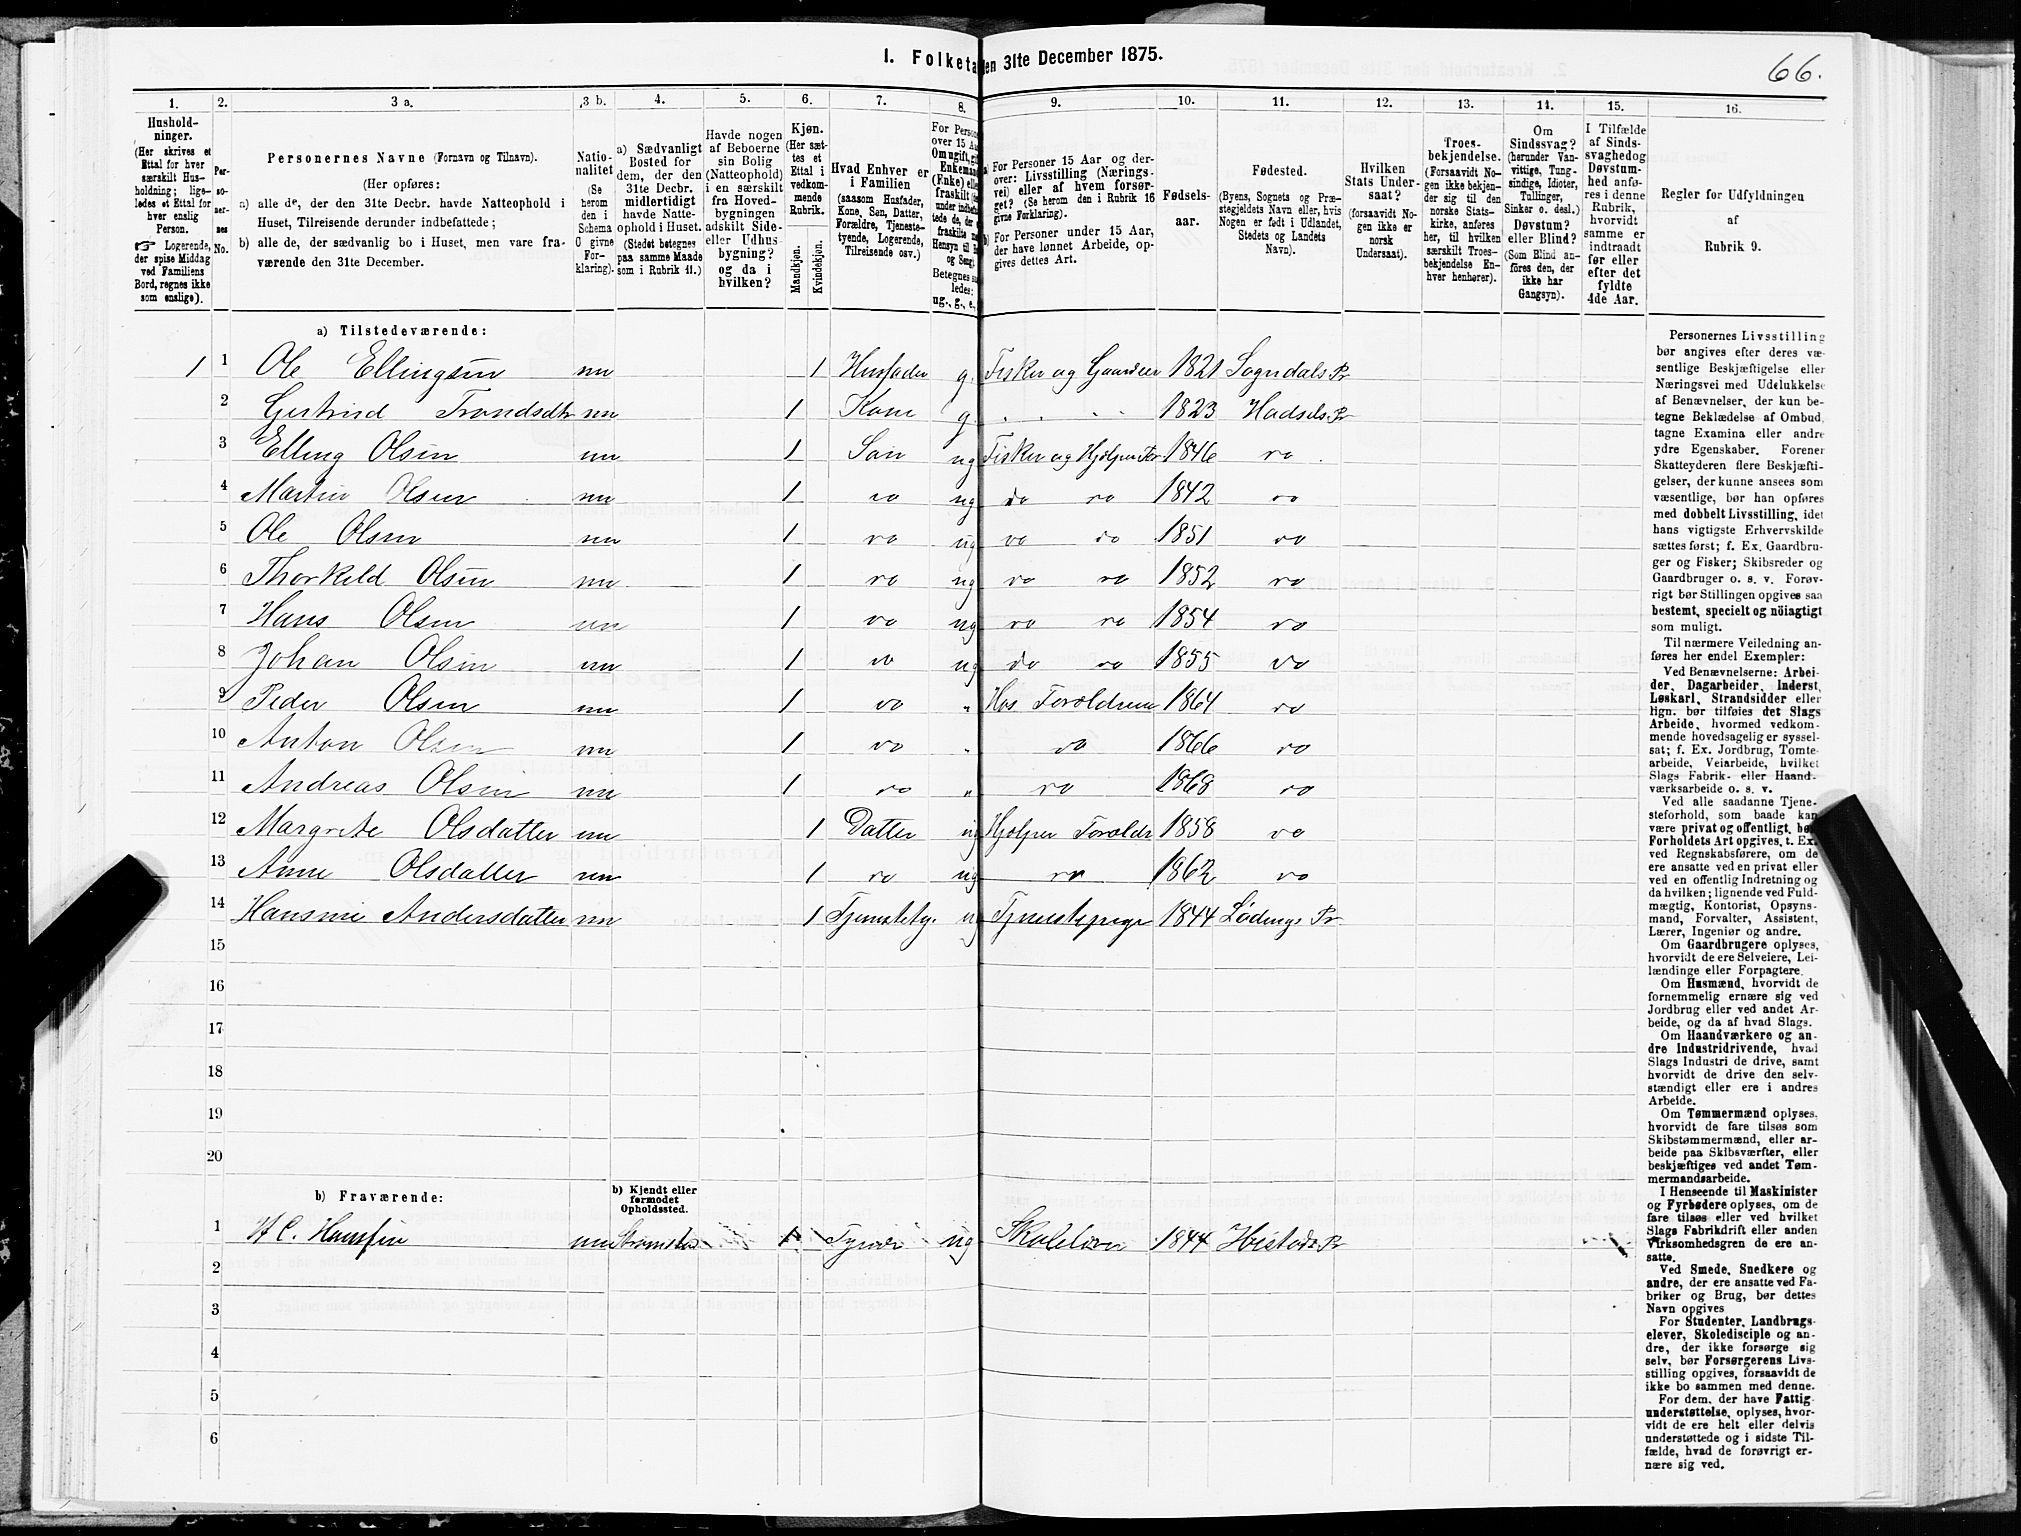 I. Folketa en 31te December 1875.
66.
1. 2. 3 a. 3 b. 4. 5. 6. 7. 8. 9. 10. 11. 12. 13. 14. 15. 16.
Hushold-
ninger.
(Her skrives et
Ettal for hver
særskilt Hus-
holdning; lige-
ledes et Ettal for
hver enslig
Person.
☞ Logerende,
der spise Middag
ved Familiens
Bord, regnes ikke
som enslige).
Per-
so-
ner-
nes
No.
Personernes Navne (Fornavn og Tilnavn).
(Her opføres:
a) alle de, der den 31te Decbr. havde Natteophold i
Huset, Tilreisende derunder indbefattede;
b) alle de, der sædvanlig bo i Huset, men vare fra-
værende den 31te December.
Natio-
nalitet
(Se
herom
den i
Schema
O givne
For-
klaring).
a) Sædvanligt
Bosted for
dem, der den
31te Decbr.
midlertidigt
havde Natte-
ophold i Huset.
(Stedet betegnes
paa samme Maade
som i Rubrik 11.)
Havde nogen
af Beboerne
sin Bolig
(Natteophold)
i en særskilt
fra Hoved-
bygningen
adskilt Side-
eller Udhus-
bygning?
og da i
hvilken?
Kjøn.
(Her sæt-
tes et
Ettal i
vedkom-
mende
Rubrik.
Mandkjøn.
Kvindekjøn.
Hvad Enhver er
i Familien
(saasom Husfader,
Kone, Søn, Datter,
Forældre, Tjeneste-
tyende, Logerende,
Tilreisende osv.)
For Person
over 15 Aa
Om ugift, gif
Enkemand
(Enke) elle
fraskilt
Hensyn til
og Seng.
Betegnes saa
ledes:
ug., g., e.,
a) For Personer 15 Aar og der-
over: Livsstilling (Nærings-
vei) eller af hvem forsør-
get? (Se herom den i Rubrik 16
givne Forklaring).
b) For Personer under 15 Aar,
der have lønnet Arbeide, op-
gives dettes Art.
Fødsels-
aar.
Fødested.
(Byens, Sognets og Præ-
stegjeldets Navn eller, hvis
Nogen er født i Udlandet,
Stedets og Landets
Navn).
Hvilken
Stats Under-
saat?
(forsaavidt No-
gen ikke er
norsk
Undersaat).
Troes-
bekjendelse.
(Forsaavidt No-
gen ikke bekjen-
der sig til den
norske Stats-
kirke, anføres
her, til hvilken
særskilt Troes-
bekjendelse En-
hver henhører).
Om
Sindssvag?
(herunder Van-
vittige, Tung-
sindige, Idioter,
Tullinger,
Sinker o. desl.)
Døvstum?
eller Blind?
(Som Blind an-
føres den, der
ikke har
Gangsyn).
I Tilfælde
af Sinds-
svaghedog
Døvstum-
hed anfø-
res i denne
Rubrik,
hvorvidt
samme er
indtraadt
før eller
efter det
fyldte
4de Aar.
Regler for Udfyldningen
af
Rubrik 9.
a) Tilstedeværende:
1 1 Ole Ellingsen nn 1 Husfader g. Fisker og Gaardeier 1821 Sogndals Pr
2 Gertrud Trondsdtr nn 1 Kone g. " " 1823 Hadsels Pr
3 Elling Olsen nn 1 Søn ug Fisker og Hjælper For 1846 do
4 Martin Olsen nn 1 do ug do do 1842 do
5 Ole Olsen nn 1 do ug do do 1851 do
6 Thorkild Olsen nn 1 do ug do do 1852 do
7 Hans Olsen nn 1 do ug do do 1854 do
8 Johan Olsen nn 1 do ug do do 1855 do
9 Peder Olsen nn 1 do " Hos Forældrene 1864 do
10 Anton Olsen nn 1 do " do 1866 do
11 Andreas Olsen nn 1 do " do 1868 do
12 Margrete Olsdatter nn 1 Datter ug Hjælper Forældr 1858 do
13 Anne Olsdatter nn 1 do ug do 1862 do
14 Hansine Andersdatter nn 1 Tjenstety. ug Tjenestepige 1844 Lødings Pr
15
16
17
18
19
20
b) Fraværende:
b) Kjendt eller
formodet
Opholdssted.
1 H C. Hansen nn 1 ug Skolelærer 1844
2
3
4
5
6
Personernes Livsstilling
bør angives efter deres væ-
sentlige Beskjæftigelse eller
Næringsvei med Udelukkelse
af Benævnelser, der kun be-
tegne Beklædelse af Ombud,
tagne Examina eller andre
ydre Egenskaber. Forener
Skatteyderen flere Beskjæfti-
gelser, der kunne ansees som
væsentlige, bør han opføres
med dobbelt Livsstilling, idet
hans vigtigste Erhvervskilde
sættes først; f. Ex. Gaardbru-
ger og Fisker; Skibsreder og
Gaardbruger o. s. v. Forøv-
rigt bør Stillingen opgives saa
bestemt, specielt og nöiagtigt
som muligt.
Til nærmere Veiledning an-
føres her endel Exempler:
Ved Benævnelserne: Arbei-
der, Dagarbeider, Inderst,
Løskarl, Strandsidder eller
lign. bør tilføies det Slags
Arbeide, hvormed vedkom-
mende hovedsagelig er syssel-
sat; f. Ex. Jordbrug, Tomte-
arbeide, Veiarbeide, hvilket
Slags Fabrik- eller Haand-
værksarbeide o. s. v.
Ved alle saadanne Tjene-
steforhold, som baade kan
være privat og offentligt, bør
Forholdets Art opgives, t. Ex.
ved Regnskabsførere, om de
ere ansatte ved en privat eller
ved en offentlig Indretning og
da hvilken; lignende ved Fuld-
mægtig, Kontorist, Opsyns-
mand, Forvalter, Assistent,
Lærer, Ingeniør og andre.
Om Gaardbrugere oplyses,
hvorvidt de ere Selveiere, Lei-
lændinge eller Forpagtere.
Om Husmænd, hvorvidt de
fornemmelig ernære sig ved
Jordbrug eller ved andet Ar-
beide, og da af hvad Slags.
Om Haandværkere og an-
dre Industridrivende, hvad
Slags Industri de drive, samt
hvorvidt de drive den selv-
stændigt eller ere i andres
Arbeide.
Om Tømmermænd oplyses,
hvorvidt de fare tilsøs som
Skibstømmermænd, eller ar-
beide paa Skibsværfter, eller
beskjæftiges ved andet Tøm-
mermandsarbeide.
I Henseende til Maskinister
og Fyrbødere oplyses, om de
fare tilsøs eller ved hvilket
Slags Fabrikdrift eller anden
Virksomhedsgren de ere an-
satte.
Ved Smede, Snedkere og
andre, der ere ansatte ved Fa-
briker og Brug, bør dettes
Navn opgives
For Studenter, Landbrugs-
elever, Skoledisciple og an-
dre, der ikke forsørge sig
selv, bør Forsørgerens Livs-
stilling opgives, forsaavidt de
ikke bo sammen med denne.
For dem, der have Fattig-
understøttelse, oplyses, hvor-
vidt de ere helt eller delvis
understøttede og i sidste Til-
fælde, hvad de forøvrigt er-
nære sig ved.